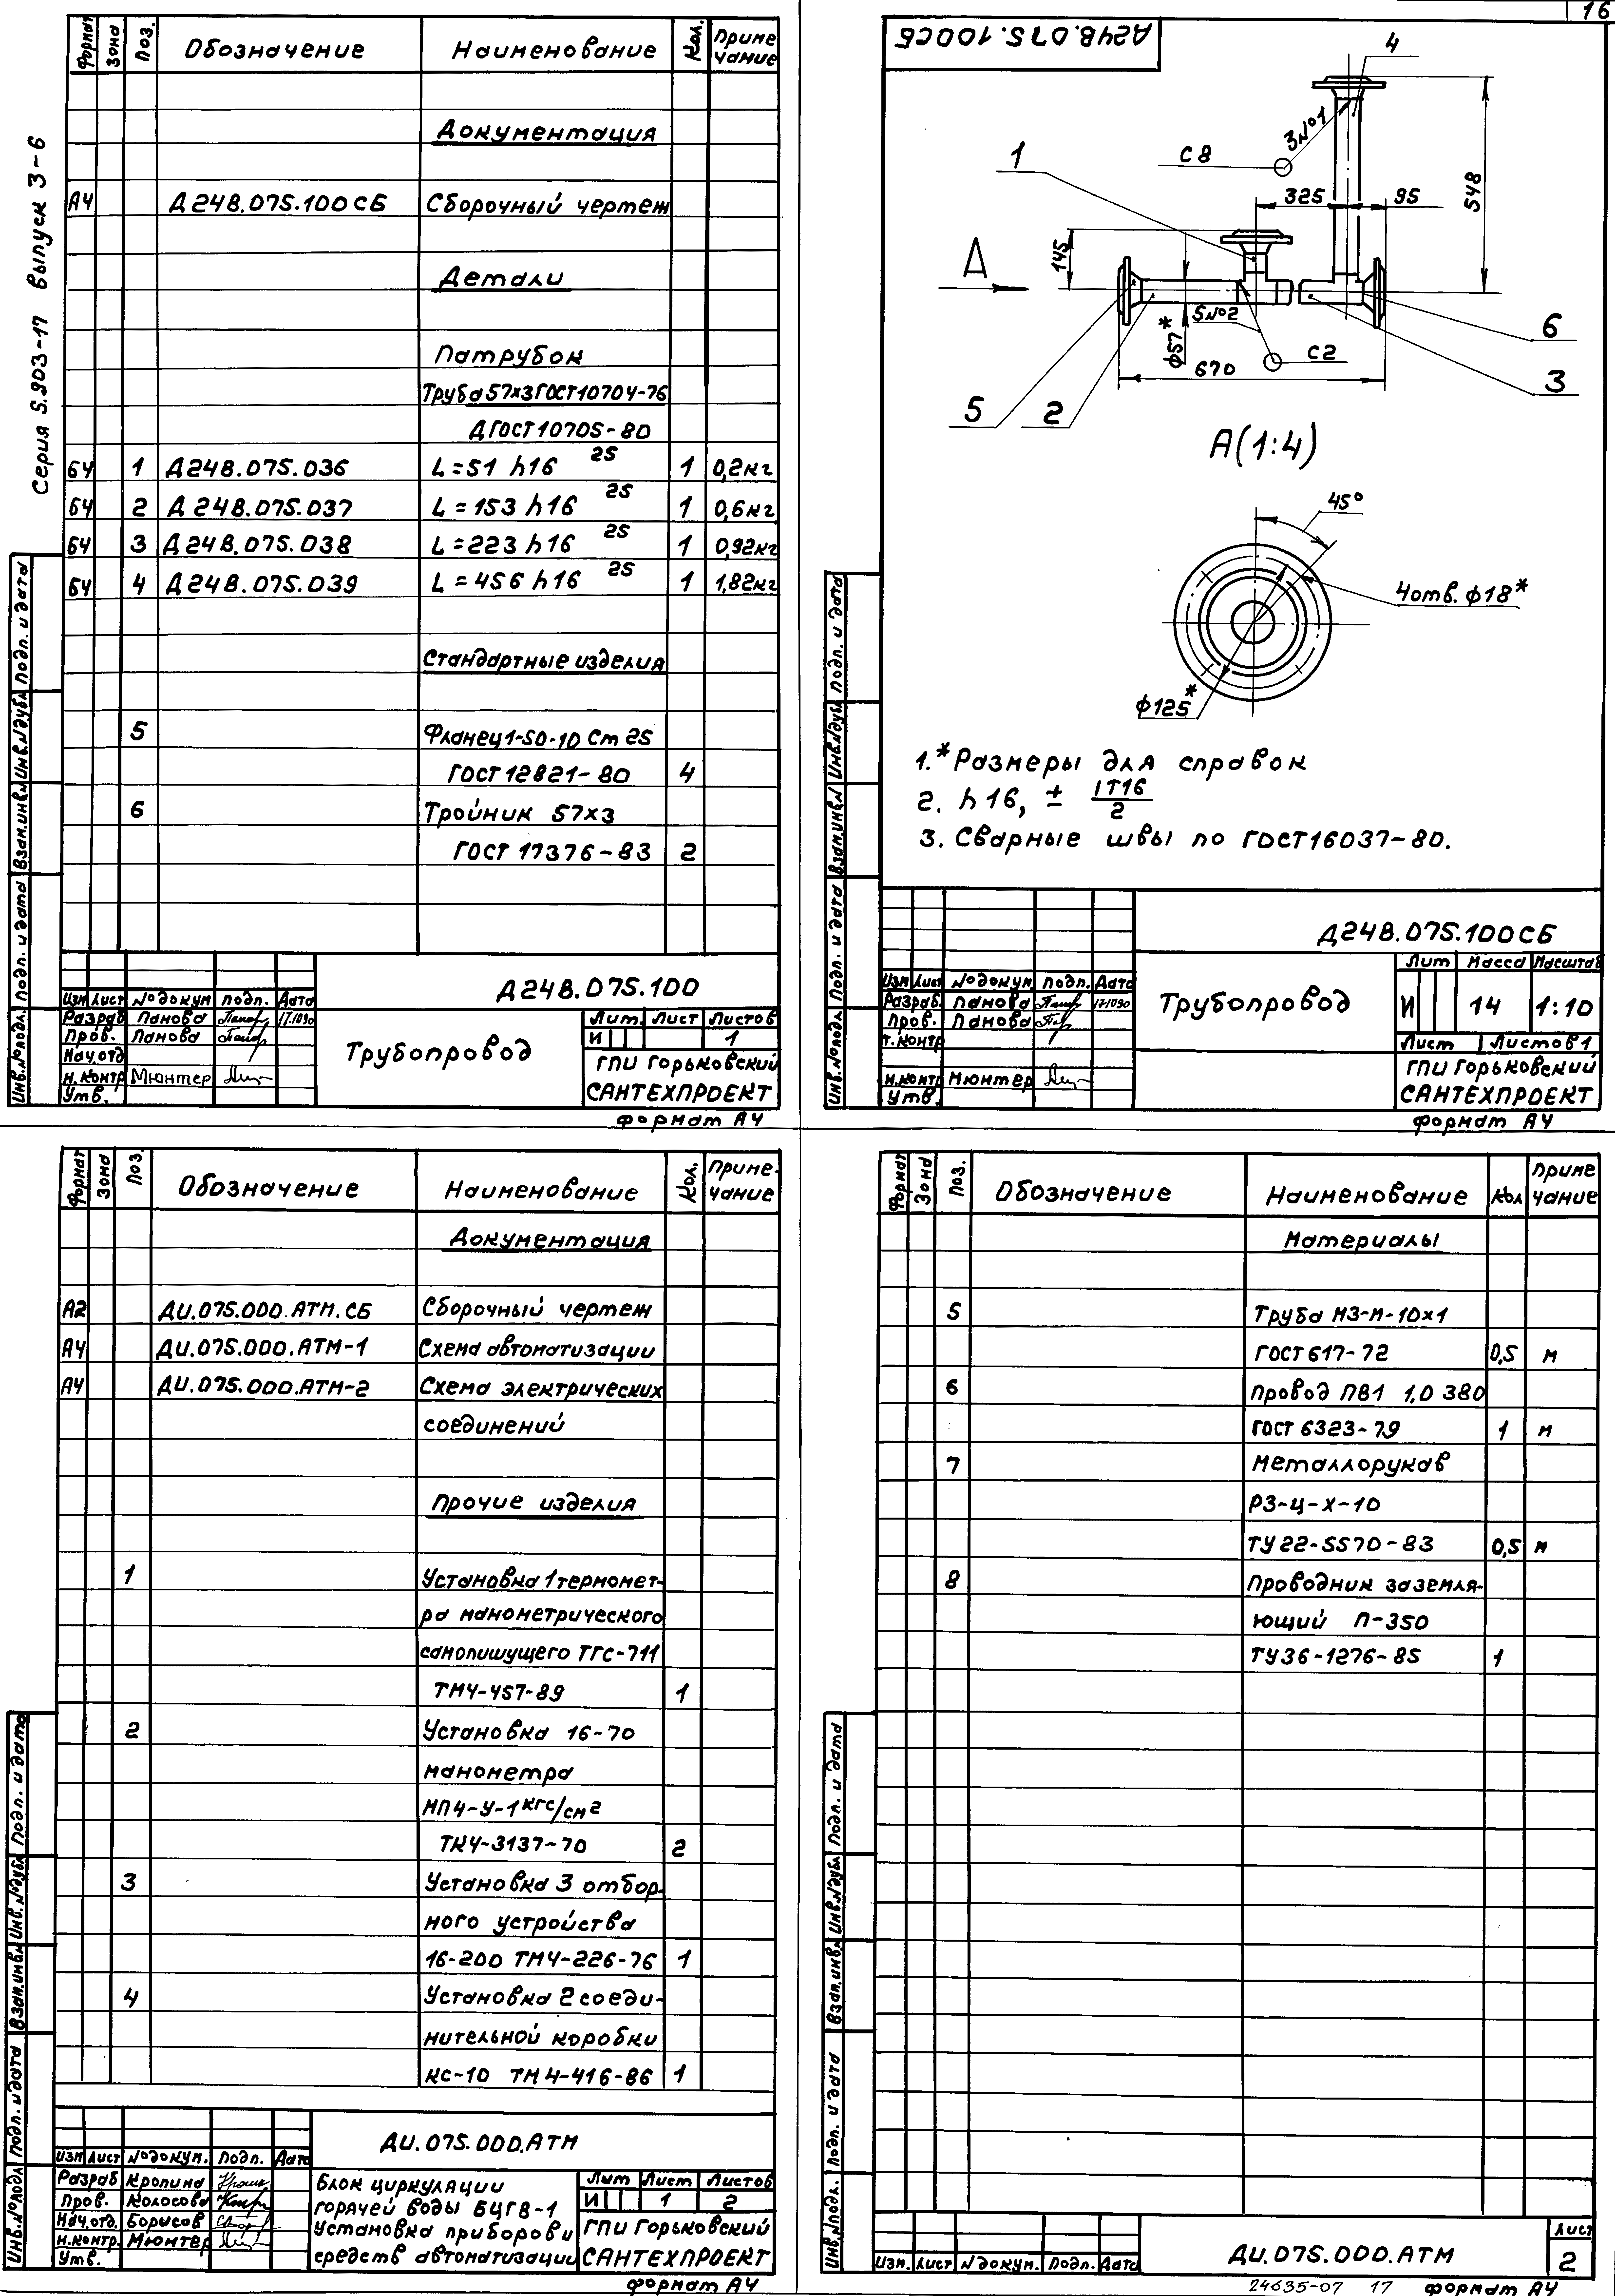 Серия 5.903-17 выпуск 3-6
Формат Зона Поз. Обозначение Наименование Кол. Приме
чание
Документация
А4 Д24В.075.100СБ Сборочный чертеж
Детали
Патрубок
Труба 57х3 ГОСТ 10704-76
Д ГОСТ 10705-80
БЧ 1 Д24В.075.036 L=51 h16 25 1 0,2кг
БЧ 2 Д24В.075.037 L=153 h16 25 1 0,6кг
БЧ 3 Д24В.075.038 L=223 h16 25 1 0,92кг
БЧ 4 Д24В.075.039 L=456 h16 25 1 1,82кг
Стандартные изделия
5 Фланец 1-50-10 Ст 25
ГОСТ 12821-80 4
6 Тройник 57х3
ГОСТ 17376-83 2
Инв.№подл. Подп. и дата Взам.инв.№ Инв.№дубл. Подп. и дата
Д24В.075.100
Изм Лист №докум Подп. Дата
Разраб Панова 17.10.90
Пров. Панова
Нач.отд
Н.контр Мюнтер
Утв.
Трубопровод
Лит. Лист Листов
И 1
ГПИ Горьковский
САНТЕХПРОЕКТ
Формат А4
16
Д24В.075.100СБ
4
3№1
С8
1
325 95
548
145
А
5№2
С2
ϕ57*
670
6
3
5 2
А(1:4)
45°
4отв. ϕ18*
ϕ125*
1.*Размеры для справок
2. h16, ± IT16/2
3. Сварные швы по ГОСТ16037-80.
Инв.№подл. Подп. и дата Взам.инв.№ Инв.№дубл Подп. и дата
Д24В.075.100СБ
Изм Лист №докум Подп. Дата
Разраб. Панова 17.10.90
Пров. Панова
Т.контр
Н.контр Мюнтер
Утв.
Трубопровод
Лит Масса Масштаб
И 14 1:10
Лист Листов 1
ГПИ Горьковский
САНТЕХПРОЕКТ
Формат А4
Формат Зона Поз. Обозначение Наименование Кол. Приме-
чание
Документация
А2 ДИ.075.000.АТМ.СБ Сборочный чертеж
А4 ДИ.075.000.АТМ-1 Схема автоматизации
А4 ДИ.075.000.АТМ-2 Схема электрических
соединений
Прочие изделия
1 Установка 1 термомет-
ра манометрического
самопишущего ТГС-711
ТМ4-457-89 1
2 Установка 16-70
манометра
МП4-У-1 кгс/см2
ТК4-3137-70 2
3 Установка 3 отбор-
ного устройства
16-200 ТМ4-226-76 1
4 Установка 2 соеди-
нительной коробки
КС-10 ТМ4-416-86 1
Инв.№подл. Подп. и дата Взам.инв.№ Инв.№дубл. Подп. и дата
ДИ.075.000.АТМ
Изм Лист №докум. Подп. Дата
Разраб Кропина
Пров. Колосова
Нач.отд. Борысов
Н.контр. Мюнтер
Утв.
Блок циркуляции
горячей воды БЦГВ-1
Установка приборов и
средств автоматизации
Лит Лист Листов
И 1 2
ГПИ Горьковский
САНТЕХПРОЕКТ
Формат А4
Формат Зона Поз. Обозначение Наименование Кол Приме
чание
Материалы
5 Труба М3-М-10х1
ГОСТ 617-72 0,5 м
6 Провод ПВ1 1,0 380
ГОСТ 6323-79 1 м
7 Металлорукав
РЗ-Ц-Х-10
ТУ 22-5570-83 0,5 м
8 Проводник заземля-
ющий П-350
ТУ36-1276-85 1
Инв.№подл. Подп. и дата Взам.инв.№ Инв.№дубл Подп. и дата
Изм. Лист №докум. Подп. Дата
ДИ.075.000.АТМ
Лист
2
24635-07 17 Формат А4